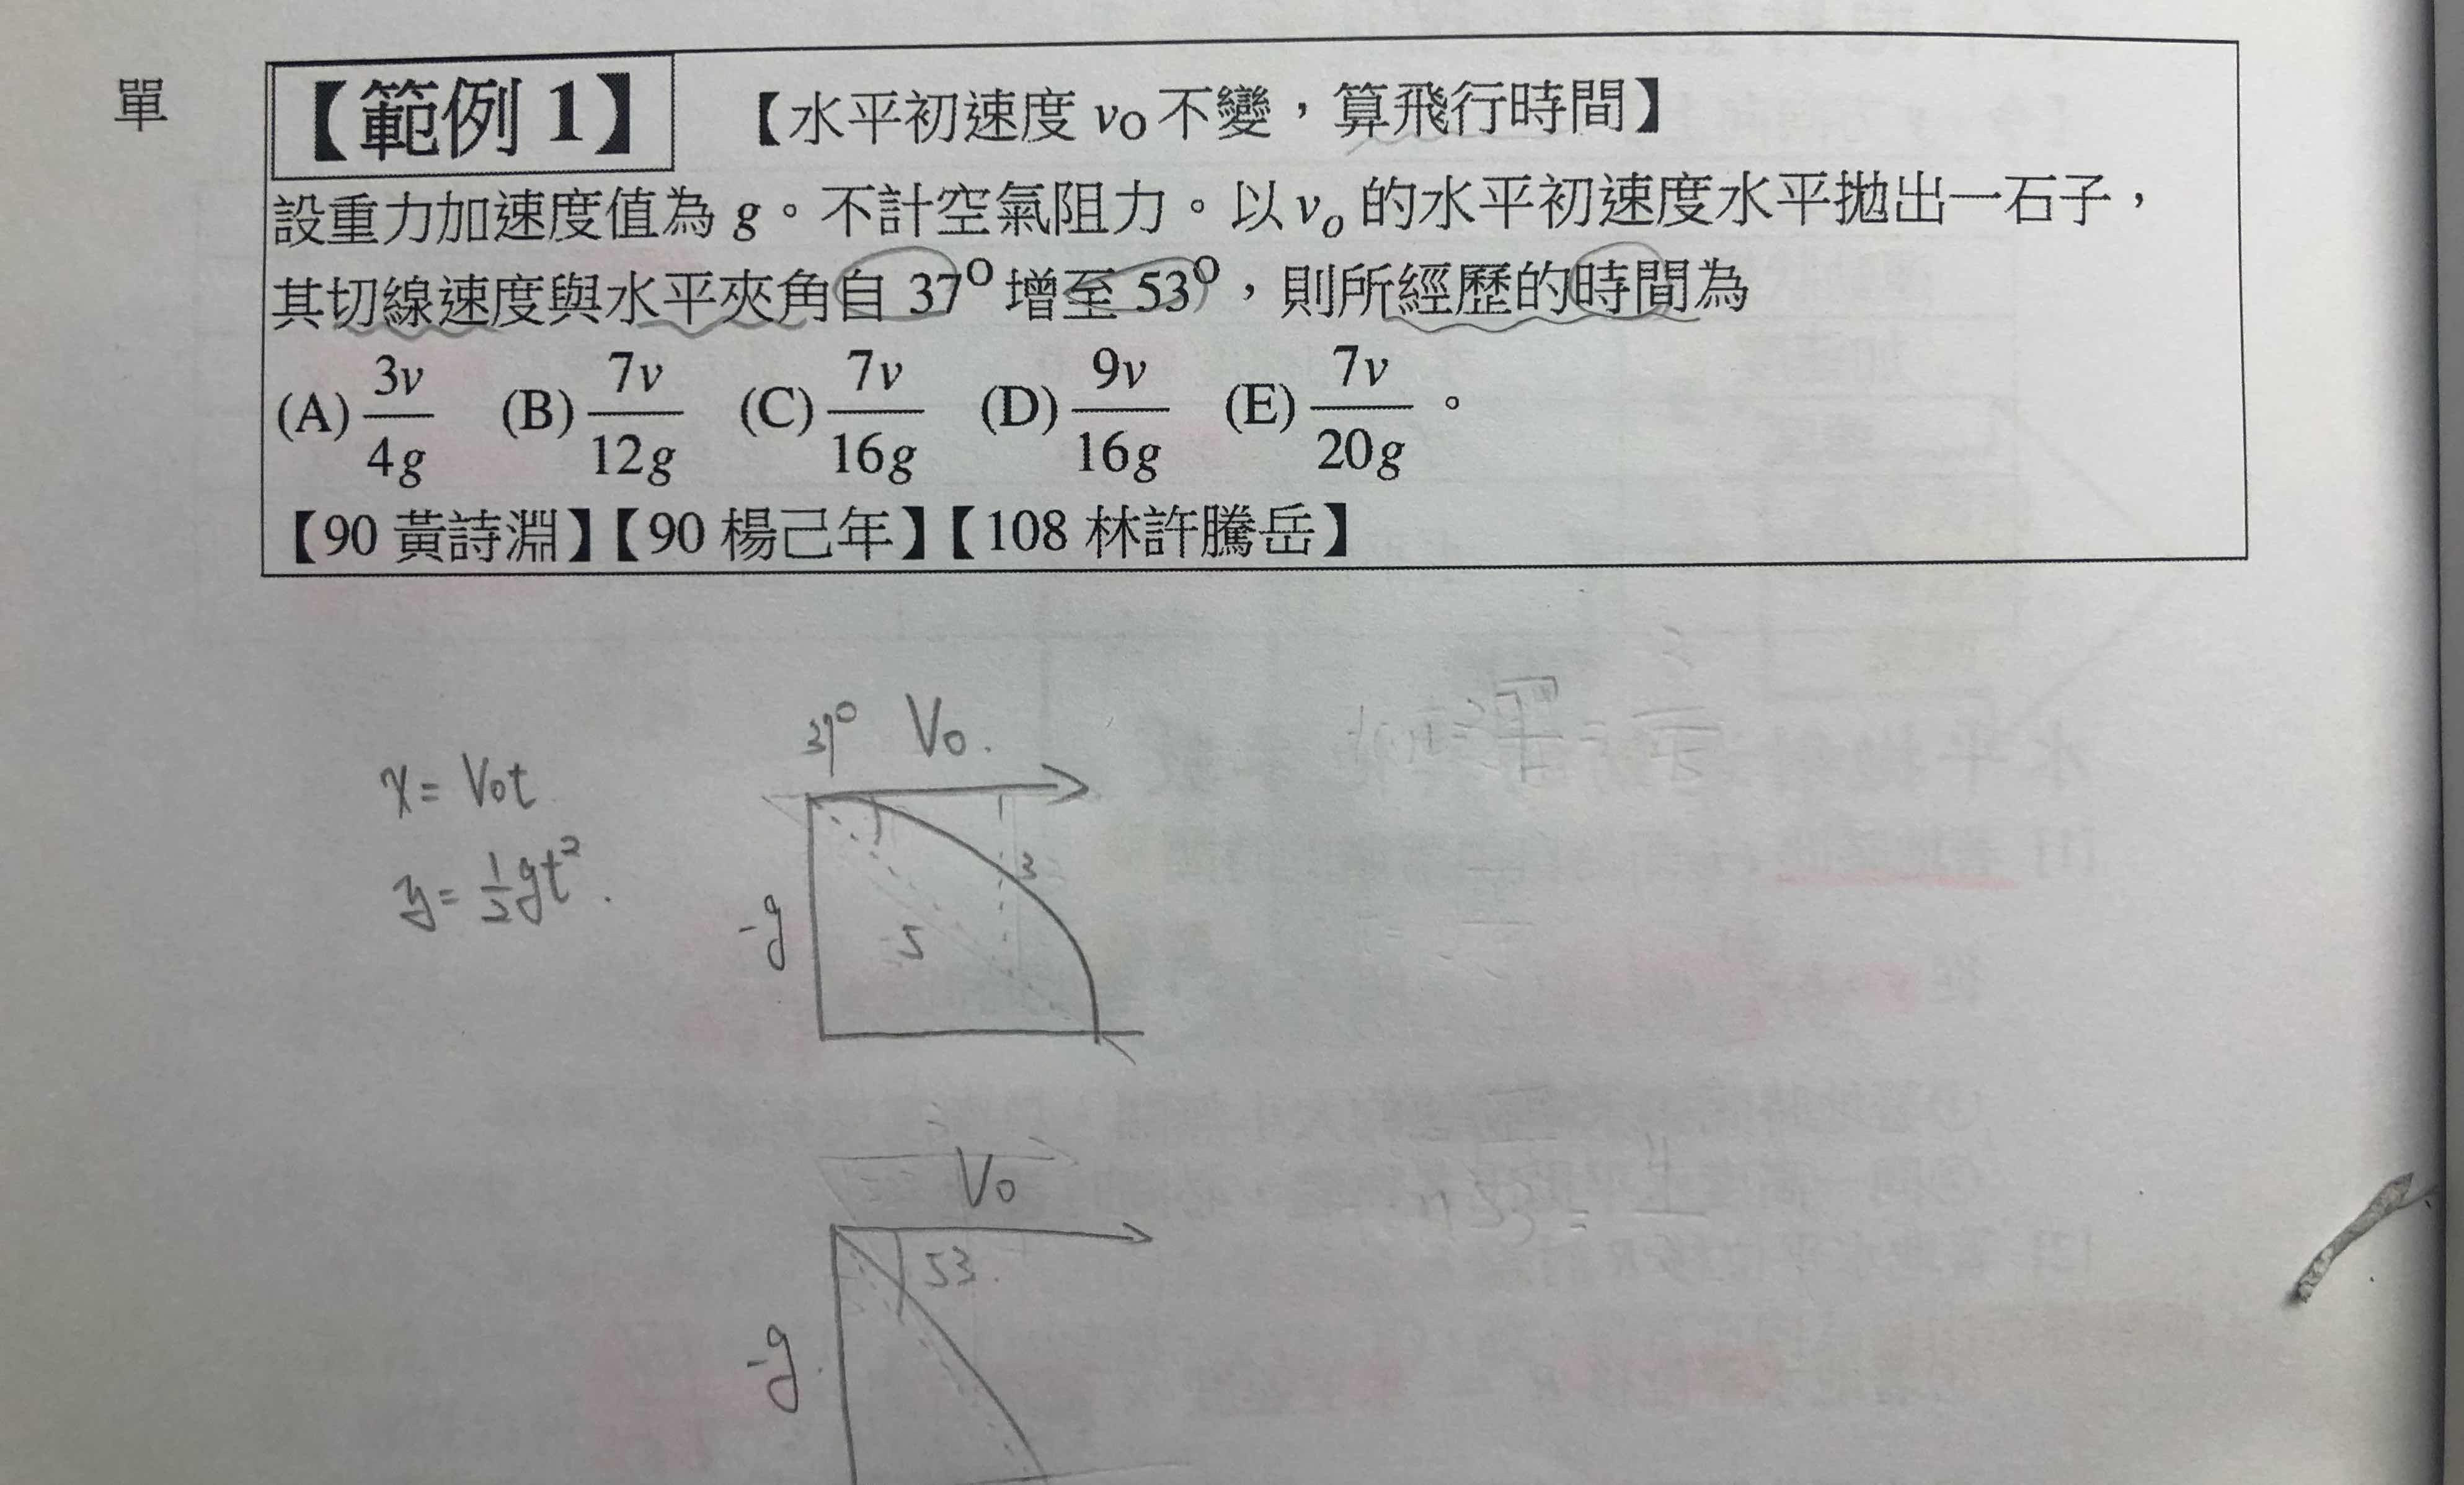 單
【範例 1】 【水平初速度 v₀ 不變，算飛行時間】
設重力加速度值為 g。不計空氣阻力。以 vₒ 的水平初速度水平拋出一石子，
其切線速度與水平夾角自 37° 增至 53°，則所經歷的時間為
(A) 3v/4g (B) 7v/12g (C) 7v/16g (D) 9v/16g (E) 7v/20g。
【90 黃詩淵】【90 楊己年】【108 林許騰岳】
37° V₀.
x = V₀t
y = 1/2 gt².
3
-g
5
V₀
53.
-g.